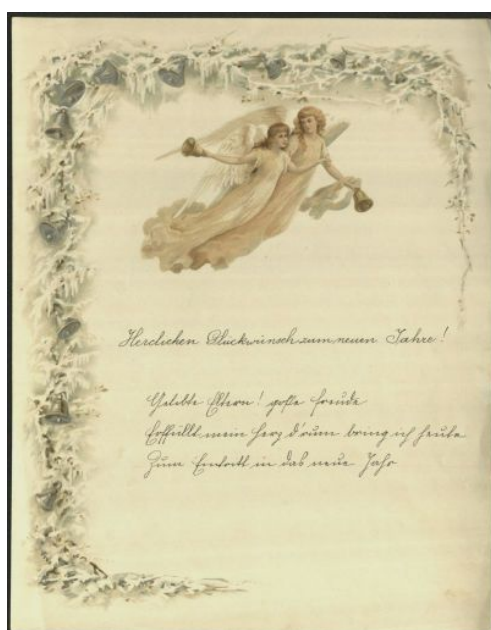 Herclichen Glückwunsch zum neuen Jahre!
Gelibte Eltern! große Freude
Erfüllt mein Herz d'rum bring ich heute
Zum Eintritt in das neue Jahr